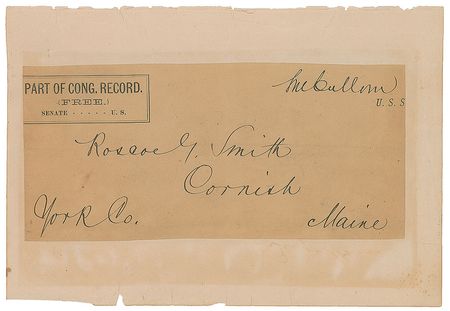 PART OF CONG. RECORD.
(FREE.)
SENATE ····· U. S.
SMCullom
U. S. S
Roscoe G. Smith
Cornish
York Co.
Maine